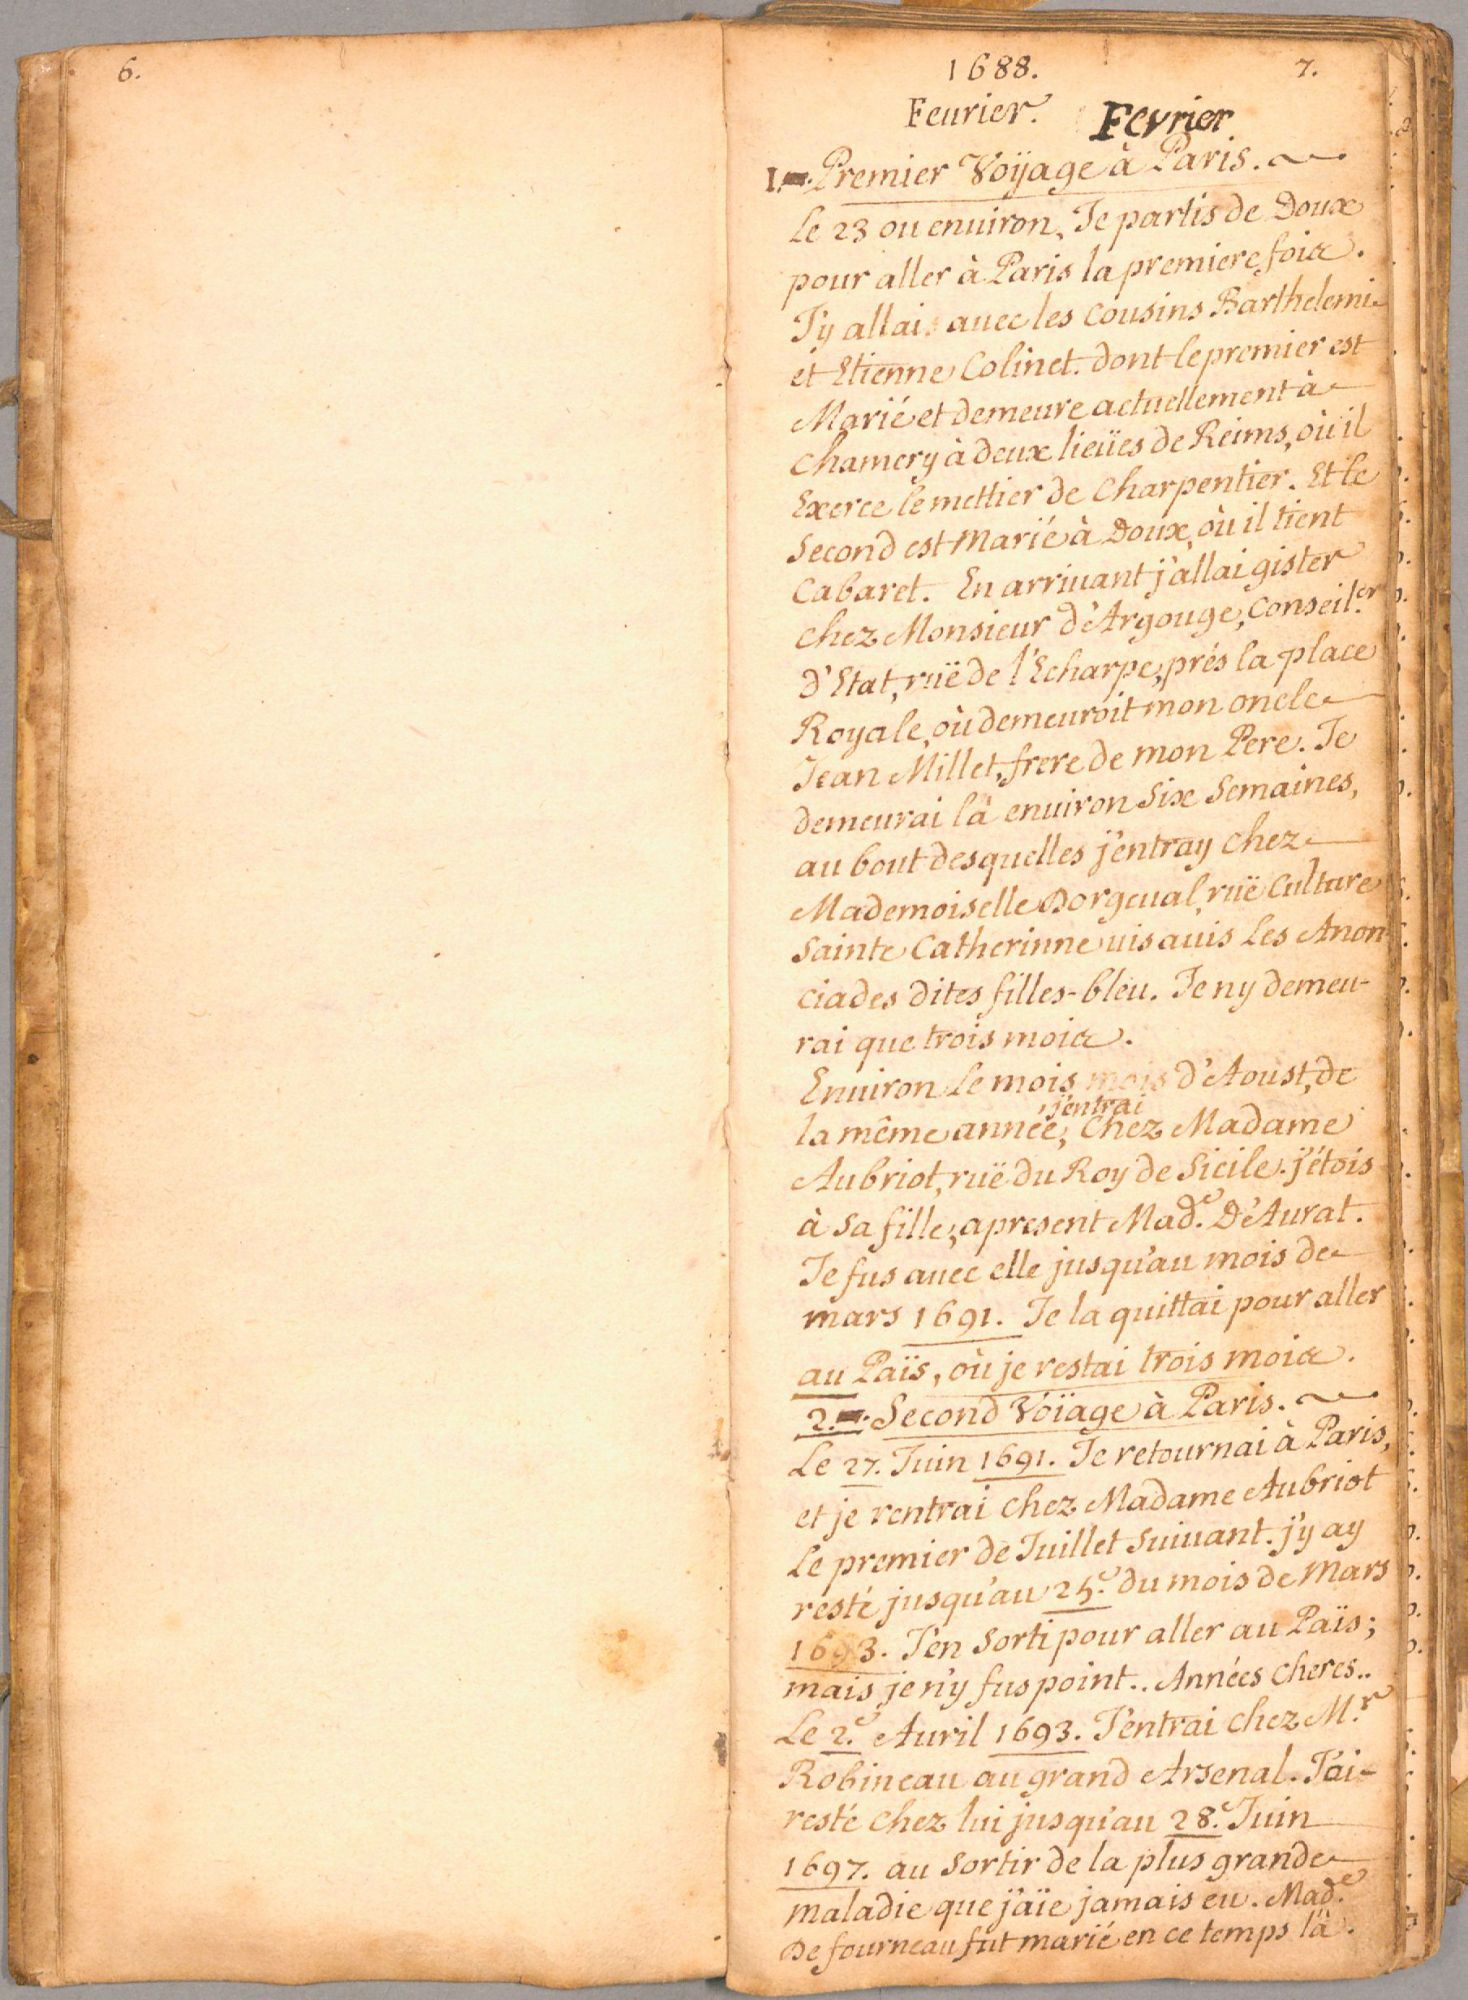 6.
1688. 7.
Feurier. Fevrier
1. Premier Voÿage à Paris.
Le 23 ou enuiron, Je partis de Doux
pour aller à Paris la premiere fois.
J'y allai auec les Cousins Barthelemi
et Etienne Colinet. dont le premier est
Marié et demeure actuellement à
Chamery à deux lieües de Reims, où il
Exerce le mettier de Charpentier. Et le
Second est Marié à Doux, où il tient
Cabaret. En arriuant j'allai gister
chez Monsieur d'Argouge, Conseil.er
d'Etat, ruë de l'Echarpe, prés la place
Royale, où demeuroit mon oncle
Jean Millet, frere de mon Pere. Je
demeurai là enuiron Six Semaines,
au bout desquelles j'entray chez
Mademoiselle Dorgeual, ruë Culture
Sainte Catherinne uis auis Les Anon-
ciades dites filles-bleu. Je ny demeu-
rai que trois mois.
Enuiron Le mois mois d'Aoust, de
la même année, j'entrai chez Madame
Aubriot, ruë du Roy de Sicile. j'étois
à Sa fille, apresent Mad.e D'Aurat.
Je fus auec elle jusqu'au mois de
mars 1691. Je la quittai pour aller
au Païs, où je restai trois mois.
2. Second Voïage à Paris.
Le 27. Juin 1691. Je retournai à Paris,
et je rentrai chez Madame Aubriot
Le premier de Juillet Suiuant. j'y ay
resté jusqu'au 25.e du mois de Mars
1693. J'en Sorti pour aller au Païs;
mais je n'y fus point.. Années Cheres..
Le 2.e Auril 1693. J'entrai chez M.r
Robineau au grand Arsenal. J'ai
resté chez lui jusqu'au 28.e Juin
1697. au Sortir de la plus grande
Maladie que j'aïe jamais eu. Mad.e
De fourneau fut marié en ce temps là.